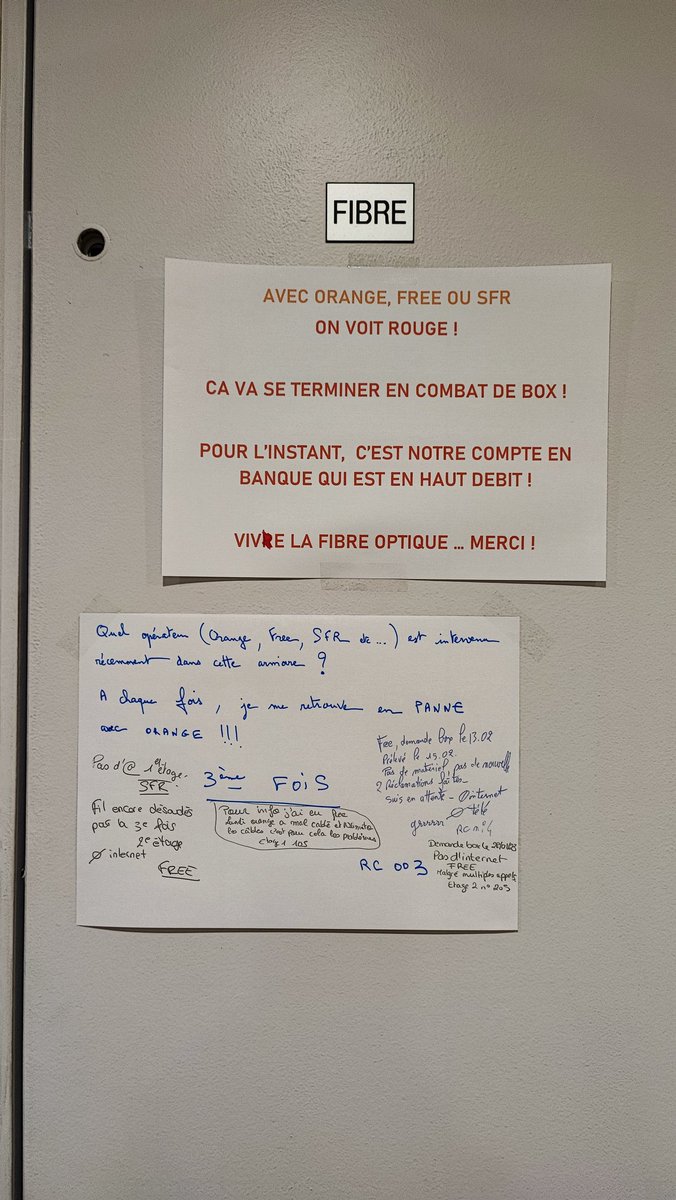 FIBRE
AVEC ORANGE, FREE OU SFR
ON VOIT ROUGE !
CA VA SE TERMINER EN COMBAT DE BOX !
POUR L'INSTANT, C'EST NOTRE COMPTE EN
BANQUE QUI EST EN HAUT DEBIT !
VIVRE LA FIBRE OPTIQUE ... MERCI !
Quel opérateur (Orange, Free, SFR etc...) est intervenu
récemment dans cette armoire ?
A chaque fois, je me retrouve en PANNE
avec ORANGE !!!
3ème FOIS
RC 003
Pas d'@ 1er étage.
SFR.
Fil encore désoudés
pas la 3e fois
2e étage
∅ internet
FREE
Pour info j'ai eu free
orange a mal cablé et
les câbles c'est pour cela les problèmes
Etag 1 105
Free, demande box le 13.02
Prélevé le 15.02.
Pas de matériel, pas de nouvelles
2 Réclamations faites_
suis en attente - ∅ internet
∅ télé
grrrrrr
RC n° 4
Demande box le
Pas d'internet
FREE
Malgré multiples appels
Etage 2 n° 205